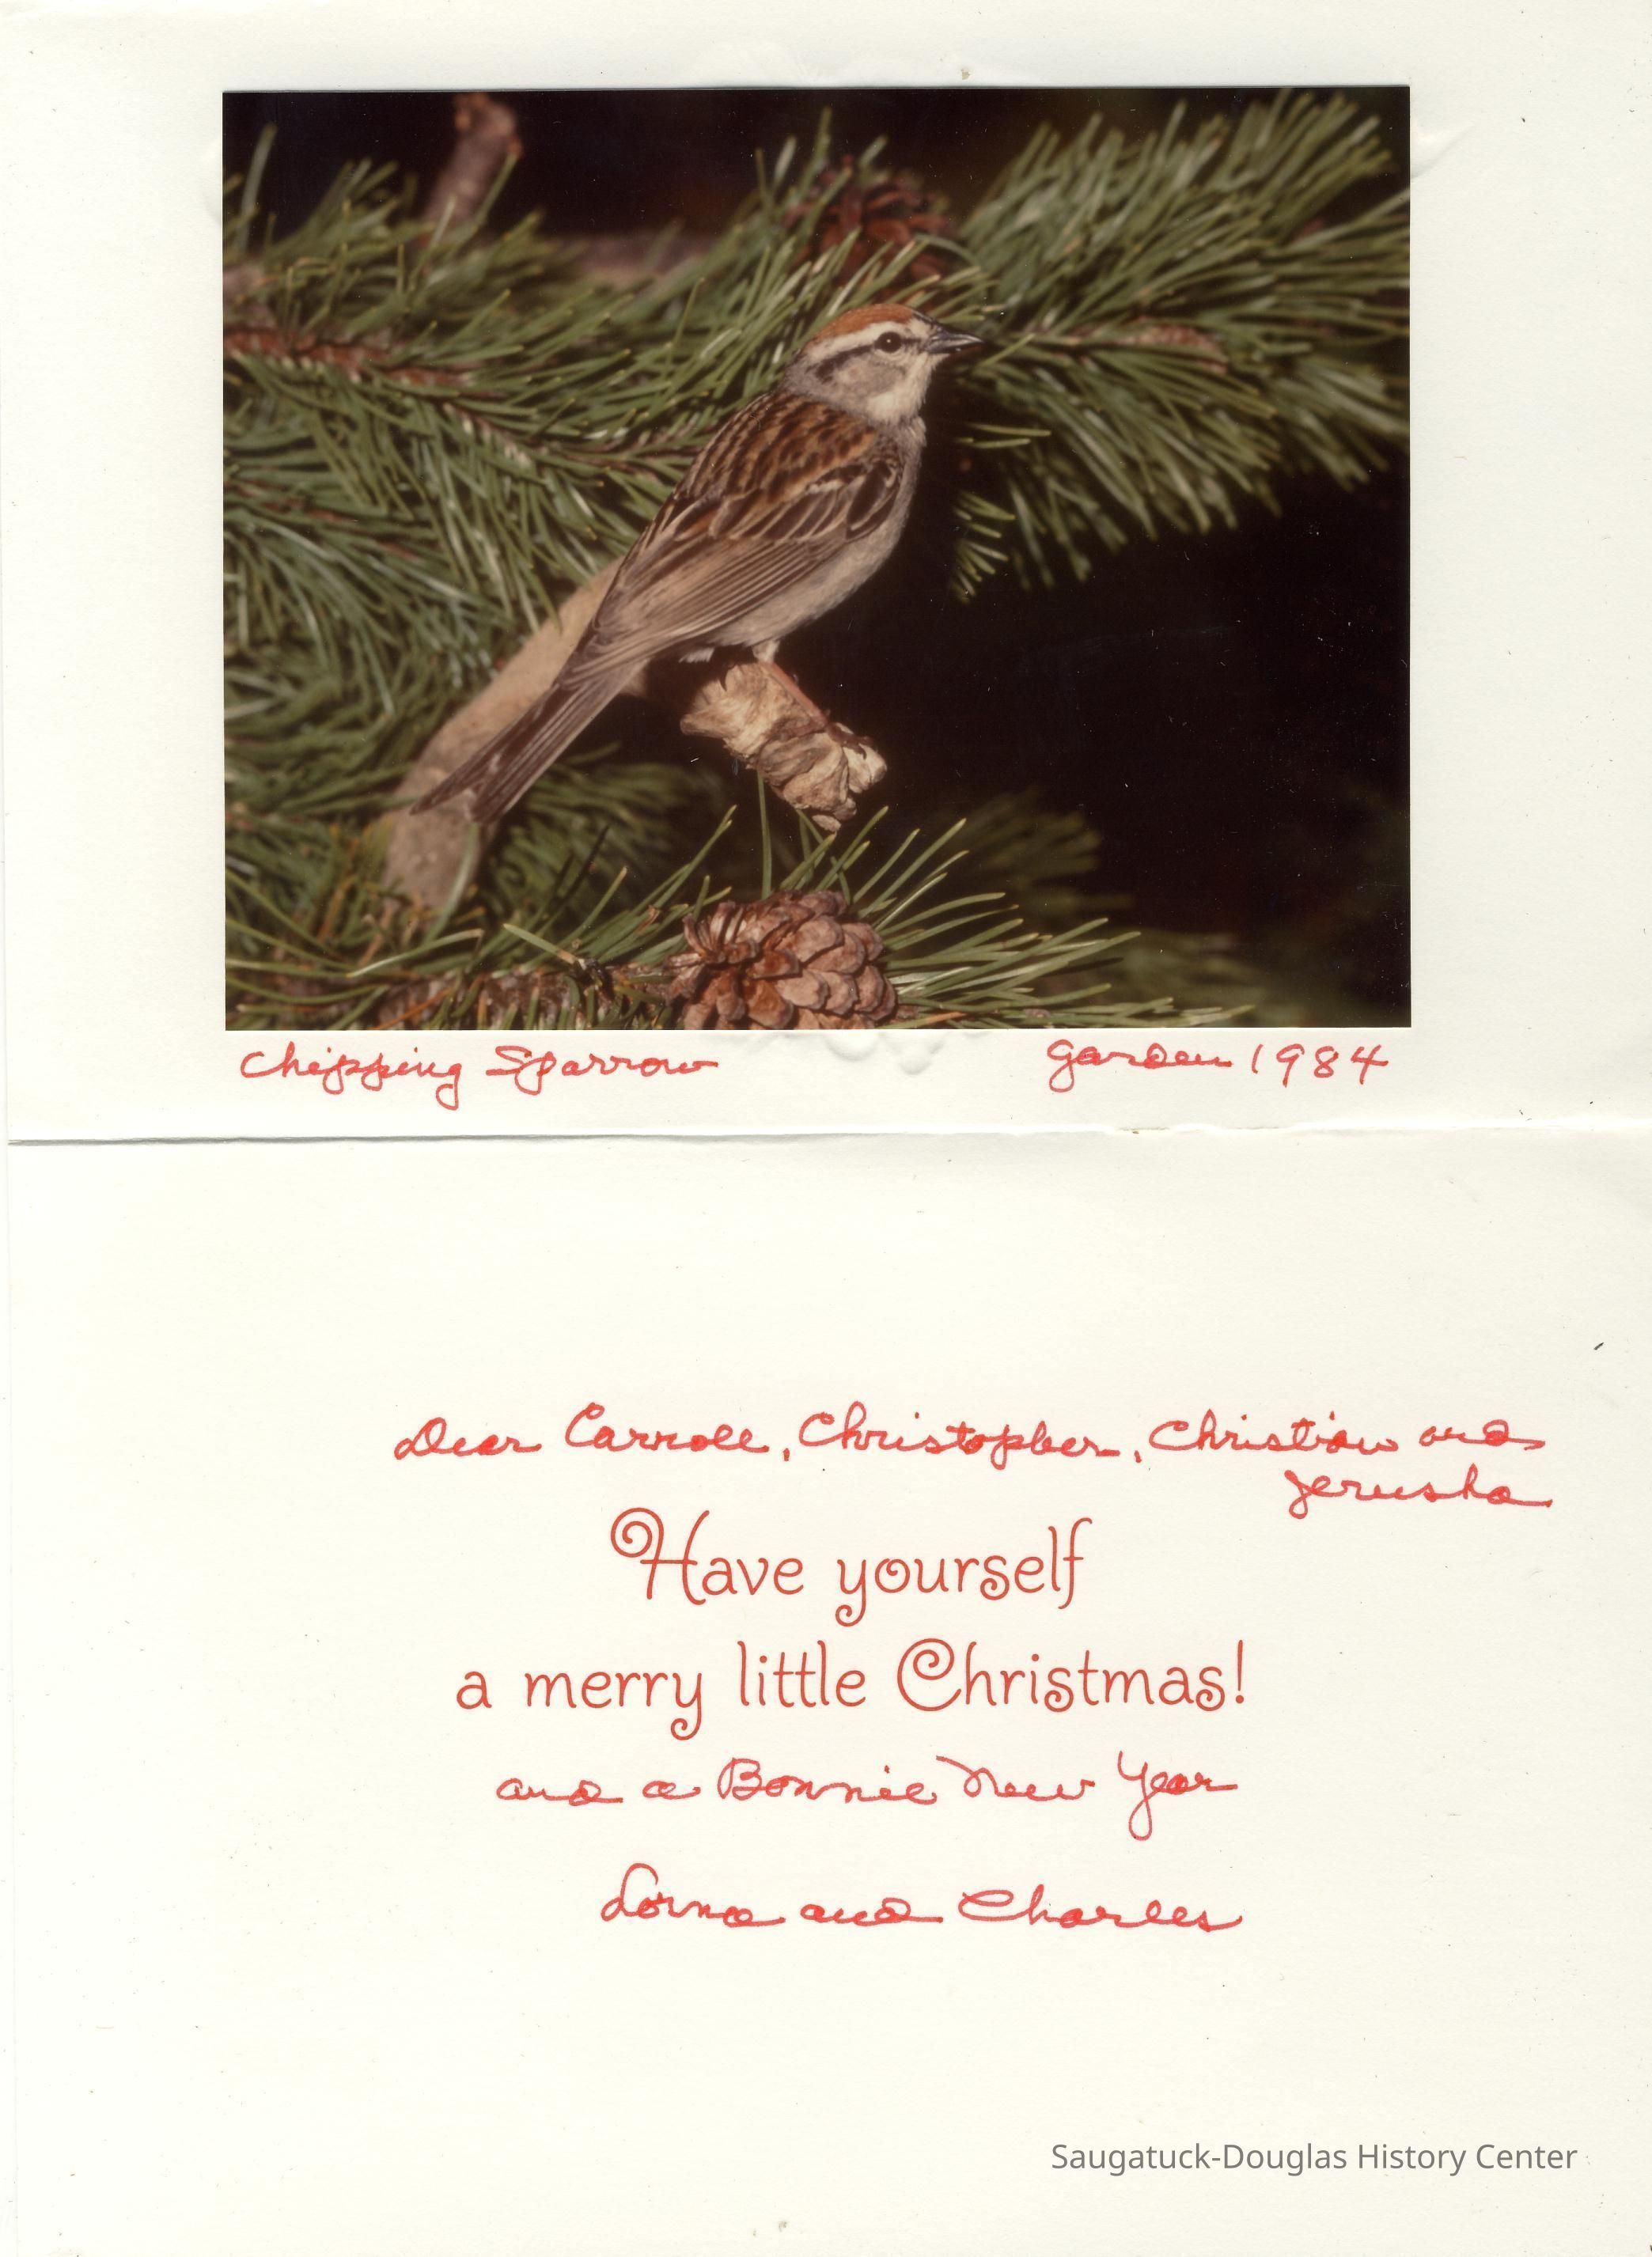 Chipping Sparrow garden 1984
Dear Carroll, Christopher, Christian and
Jerusha
Have yourself
a merry little Christmas!
and a Bonnie New Year
Lorna and Charles
Saugatuck-Douglas History Center